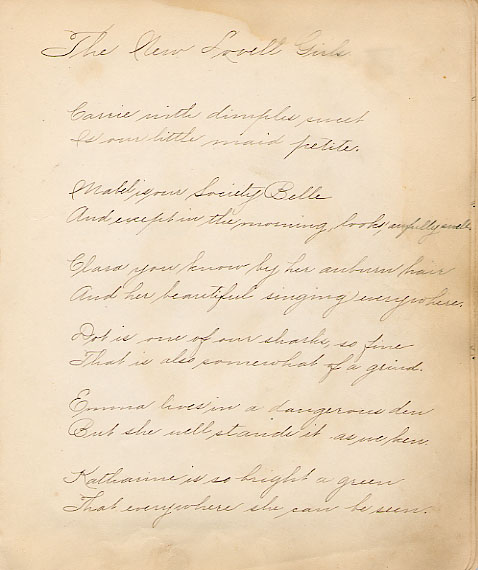 The New Lovell Girls
Carrie with dimples sweet
Is our little maid petite.
Mabel is our Society Belle
And except in the morning, looks awfully swell.
Clara you know by her auburn hair
And her beautiful singing everywhere.
Dot is one of our sharks, so fine
That is also somewhat of a grind.
Emma lives in a dangerous den
But she well stands it as we ken.
Katharine is so bright a green
That everywhere she can be seen.